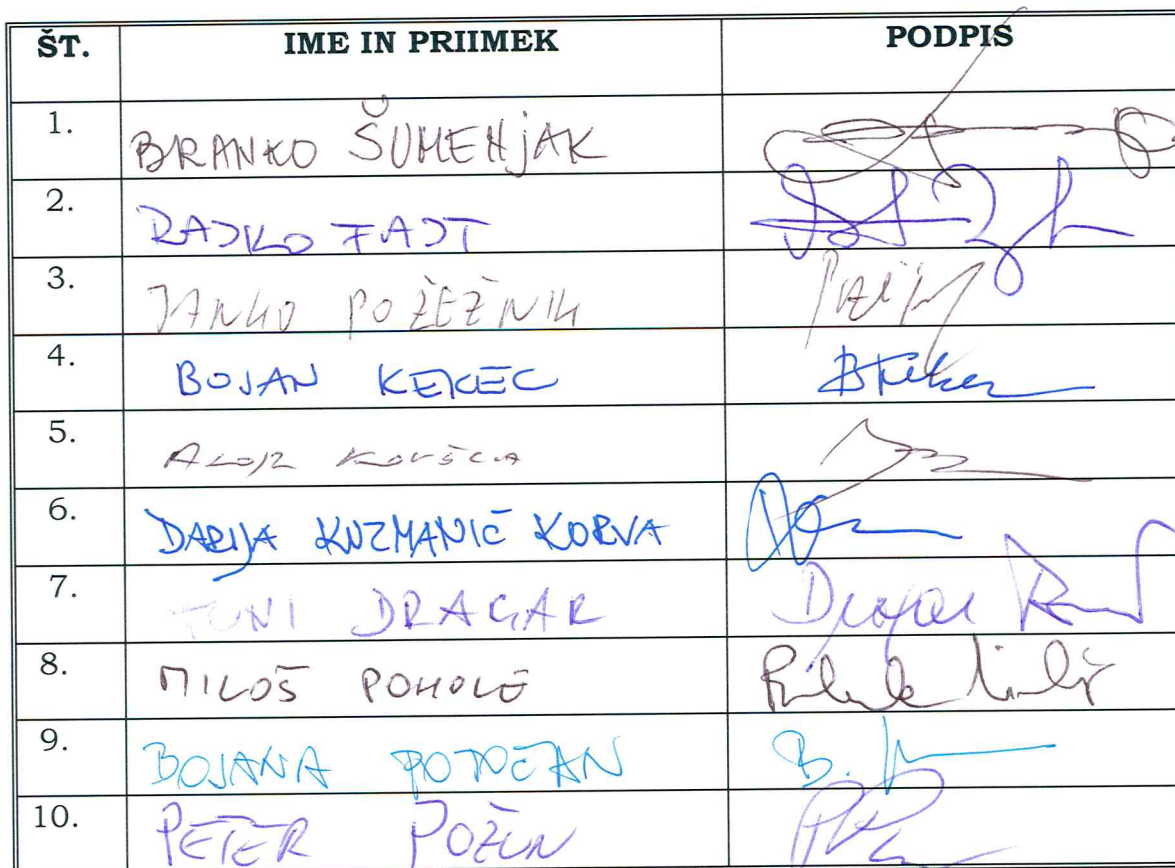 ŠT. IME IN PRIIMEK PODPIS
1. BRANKO ŠUMENJAK
2. RAJKO FAJT
3. JANKO POŽEŽNIK
4. BOJAN KEKEC
5. ALOJZ KOVŠCA
6. DARIJA KUZMANIČ KORVA
7. TONI DRAGAR Dragar
8. MILOŠ POHOLE
9. BOJANA POTOČAN B.
10. PETER POŽUN